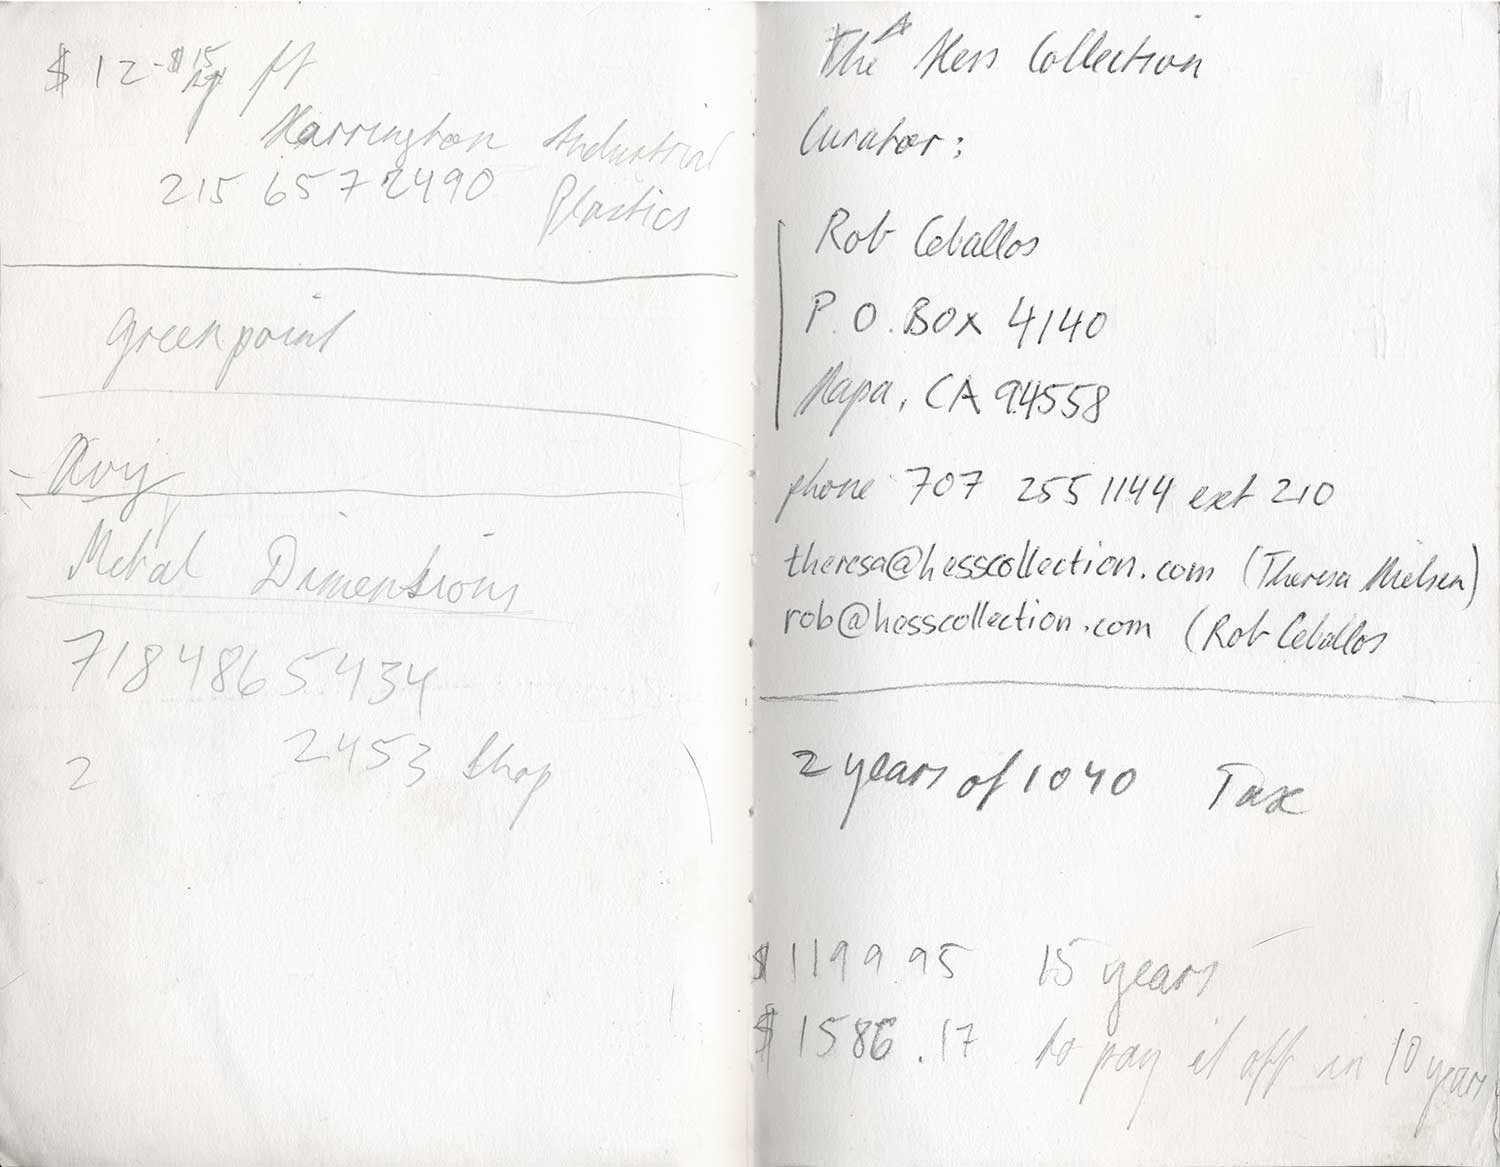 $12-$15 sq ft
Harrington Industrial
215 657 2490 Plastics
Greenpoint
Metal Dimensions
718 486 5434
2453 Shop
2
The Hess Collection
Curator:
Rob Ceballos
P.O. BOX 4140
Napa, CA 94558
phone 707 255 1144 ext 210
theresa@hesscollection.com (Theresa Nielsen)
rob@hesscollection.com (Rob Ceballos
2 years of 1040 Tax
$1199.95 15 years
$1586.17 to pay it off in 10 years